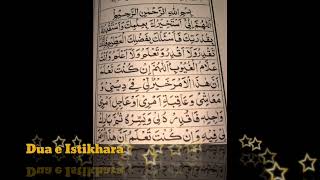 بِسْمِ اللهِ الرَّحْمٰنِ الرَّحِيْمِ
اَللّٰهُمَّ اِنِّيْ اَسْتَخِيْرُكَ بِعِلْمِكَ وَاَسْتَقْدِرُكَ
بِقُدْرَتِكَ وَاَسْئَلُكَ بِفَضْلِكَ الْعَظِيْمِ
تَقْدِرُ وَلَا اَقْدِرُ وَتَعْلَمُ وَلَا اَعْلَمُ وَاَنْتَ
عَلَّامُ الْغُيُوْبِ اَللّٰهُمَّ اِنْ كُنْتَ تَعْلَمُ
اَنَّ هٰذَا الْاَمْرَ خَيْرٌ لِّيْ فِيْ دِيْنِيْ وَ
مَعَاشِيْ وَعَاقِبَةِ اَمْرِيْ اَوْ عَاجِلِ اَمْرِيْ
وَاٰجِلِهٖ فَاقْدِرْهُ لِيْ وَيَسِّرْهُ
فِيْهِ وَاِنْ كُنْتَ تَعْلَمُ اَنَّ هٰذَا
Dua e Istikhara